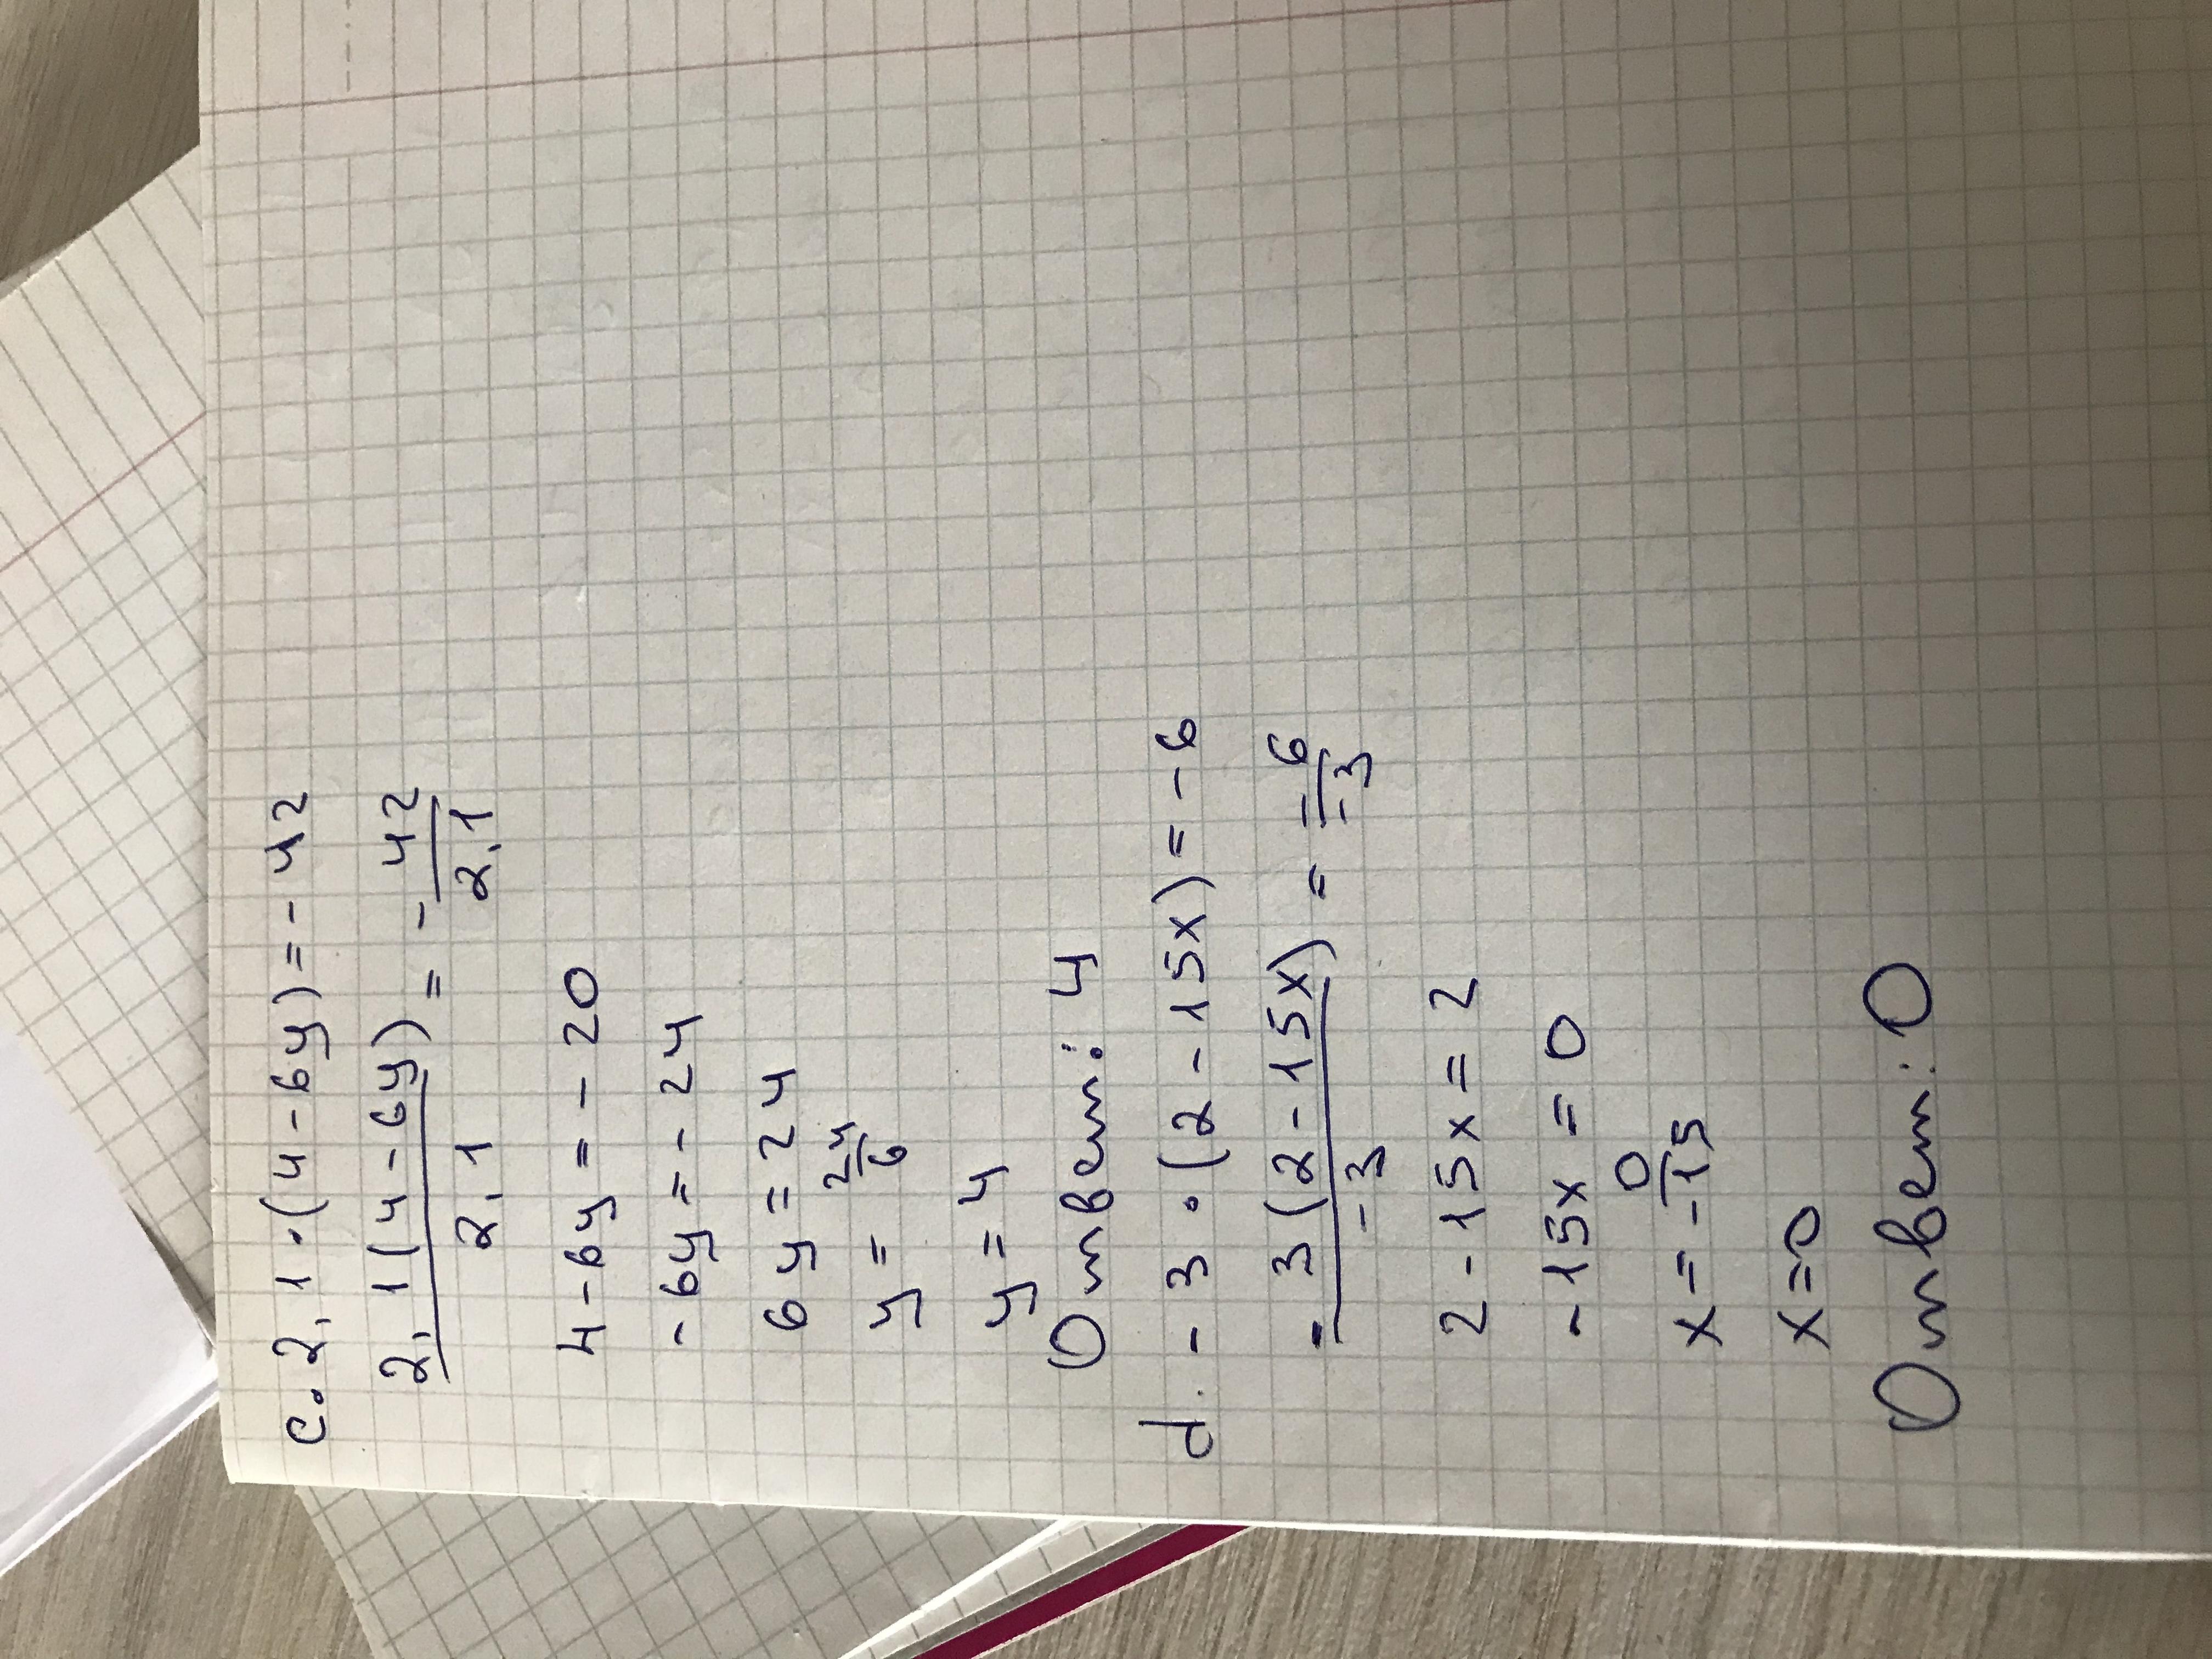 c. 2,1·(4-6y)=-42
2,1(4-6y)/2,1 = -42/2,1
4-6y=-20
-6y=-24
6y=24
y=24/6
y=4
Ответ: 4
d. -3·(2-15x)=-6
-3(2-15x)/-3 = -6/-3
2-15x=2
-15x=0
x=0/-15
x=0
Ответ: 0